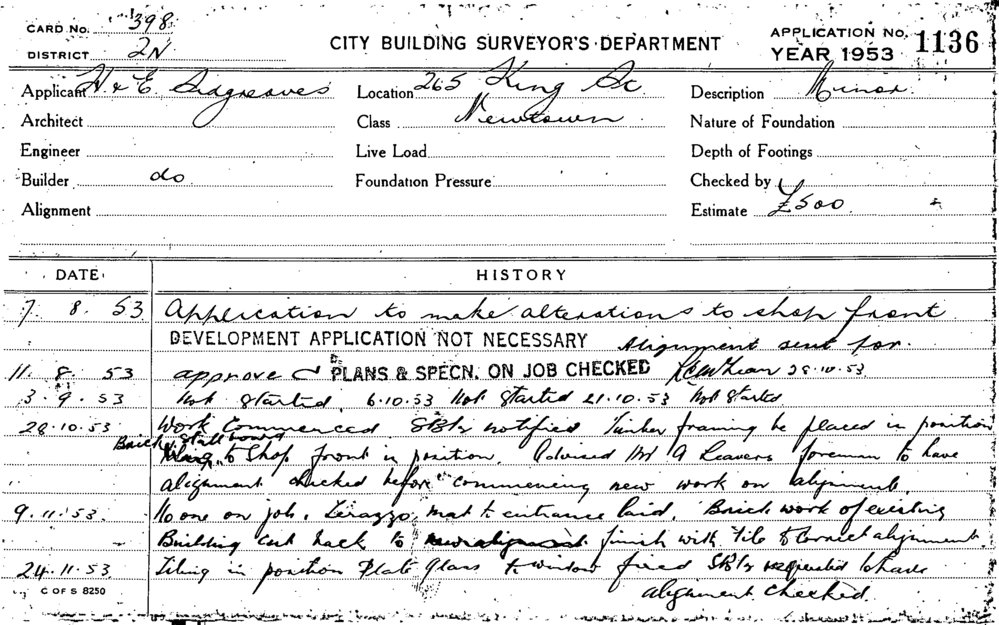 CARD No. 398
DISTRICT 2N
CITY BUILDING SURVEYOR'S DEPARTMENT
APPLICATION No. 1136
YEAR 1953
Applicant H & E Seagreaves Location 265 King St Description Minor
Architect Class Newtown Nature of Foundation
Engineer Live Load Depth of Footings
Builder do Foundation Pressure Checked by
Alignment Estimate £500
DATE HISTORY
7 8. 53 Application to make alterations to shop front
DEVELOPMENT APPLICATION NOT NECESSARY Alignment sent for.
11. 8. 53 approved PLANS & SPECN. ON JOB CHECKED 28.10.53
3.9.53 Not Started. 6.10.53 Not Started 21.10.53 Not Started
28.10.53 Work Commenced notified Timber framing be placed in position
Brick Stallboard
to Shop front in position. Advised Mr A Leavers foreman to have
alignment checked before commencing new work on alignment.
9.11.53. No one on job. Terazzo mat to entrance laid. Brick work of existing
Building cut back to finish with tile to correct alignment
24.11.53. Tiling in position Plate glass to window fixed requested to have
C OF S 8250
alignment checked.